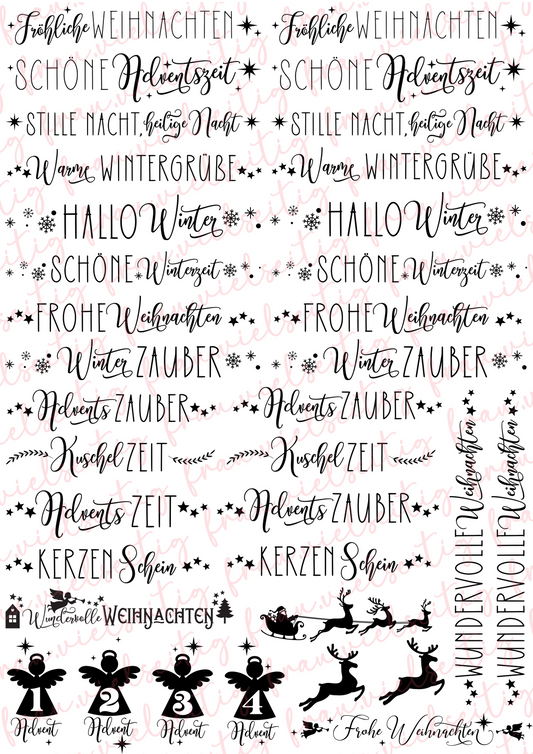 Fröhliche WEIHNACHTEN
Fröhliche WEIHNACHTEN
SCHÖNE Adventszeit
SCHÖNE Adventszeit
STILLE NACHT, heilige Nacht
STILLE NACHT, heilige Nacht
Warme WINTERGRÜßE
Warme WINTERGRÜßE
HALLO Winter
HALLO Winter
SCHÖNE Winterzeit
SCHÖNE Winterzeit
FROHE Weihnachten
FROHE Weihnachten
Winter ZAUBER
Winter ZAUBER
Advents ZAUBER
Advents ZAUBER
Kuschel ZEIT
Kuschel ZEIT
Advents ZEIT
Advents ZAUBER
KERZEN Schein
KERZEN Schein
WUNDERVOLLE Weihnachten
WUNDERVOLLE Weihnachten
Wundervolle WEIHNACHTEN
1 Advent
2 Advent
3 Advent
4 Advent
Frohe Weihnachten
frau.vielseitig